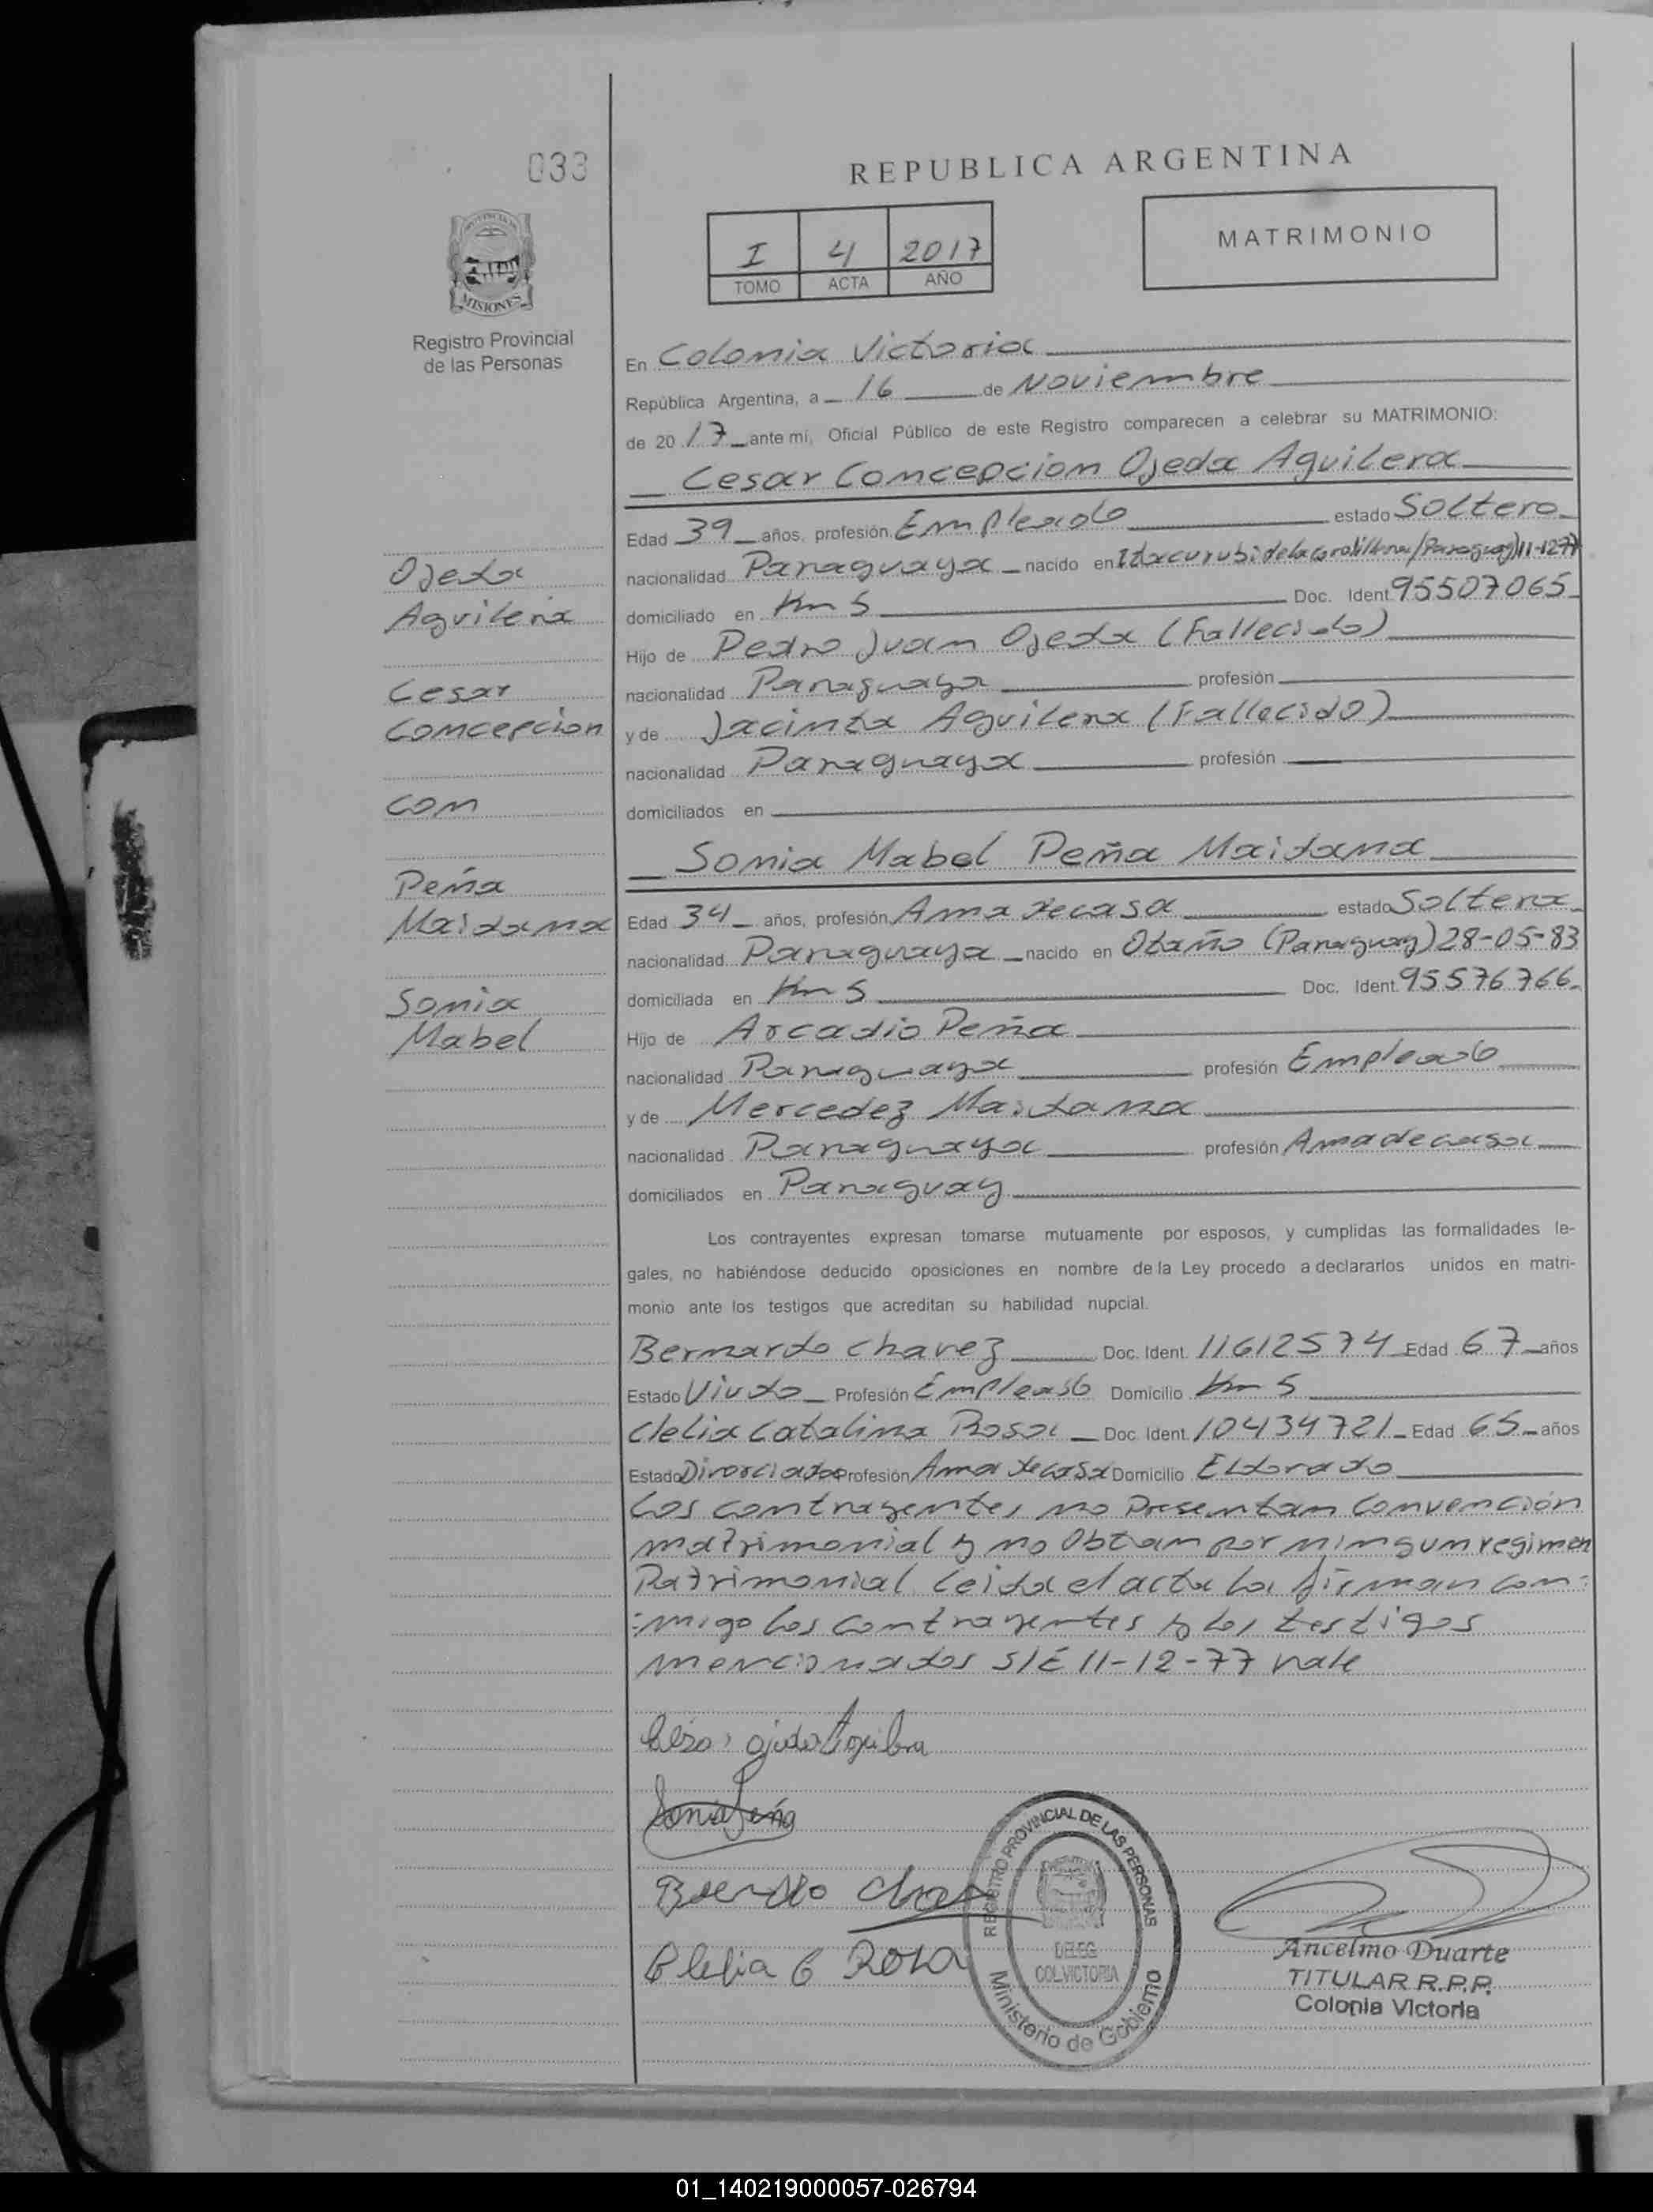 033
REPUBLICA ARGENTINA
MATRIMONIO
I 4 2017
TOMO ACTA AÑO
PROVINCIA
MISIONES
Registro Provincial
de las Personas
En Colonia Victoria
República Argentina, a 16 de Noviembre
de 2017 ante mi, Oficial Público de este Registro comparecen a celebrar su MATRIMONIO:
Cesar Concepcion Ojeda Aguilera
Edad 39 años, profesión Empleado estado Soltero
nacionalidad Paraguaya nacido en Itacurubi de la (Paraguay) 11-1277
domiciliado en Km 5 Doc. Ident. 95507065
Hijo de Pedro Juan Ojeda (Fallecido)
nacionalidad Paraguaya profesión
y de Jacinta Aguilera (Fallecido)
nacionalidad Paraguaya profesión
domiciliados en
Sonia Mabel Peña Maidana
Edad 34 años, profesión Ama de casa estado Soltera
nacionalidad Paraguaya nacido en Otaño (Paraguay) 28-05-83
domiciliada en Km 5 Doc. Ident. 95576766
Hijo de Arcadio Peña
nacionalidad Paraguaya profesión Empleado
y de Mercedez Maidana
nacionalidad Paraguaya profesión Ama de casa
domiciliados en Paraguay
Los contrayentes expresan tomarse mutuamente por esposos, y cumplidas las formalidades le-
gales, no habiéndose deducido oposiciones en nombre de la Ley procedo a declararlos unidos en matri-
monio ante los testigos que acreditan su habilidad nupcial.
Bernardo Chavez Doc. Ident. 11612574 Edad 67 años
Estado Viudo Profesión Empleado Domicilio Km 5
Clelia Catalina Rosa Doc. Ident. 10434721 Edad 65 años
Estado Divorciada Profesión Ama de casa Domicilio Eldorado
Los contrayentes no Presentan Convención
matrimonial y no Obtan por ningun regimen
Patrimonial Leida el acta la firman con-
migo los contrayentes y los testigos
mencionados S/E 11-12-77 vale
Ojeda
Aguilera
Cesar
Concepcion
con
Peña
Maidana
Sonia
Mabel
Sonia Peña
Clelia C Rosa
REGISTRO PROVINCIAL DE LAS PERSONAS
DELEG
COL.VICTORIA
Ministerio de Gobierno
Ancelmo Duarte
TITULAR R.P.P.
Colonia Victoria
01_140219000057-026794